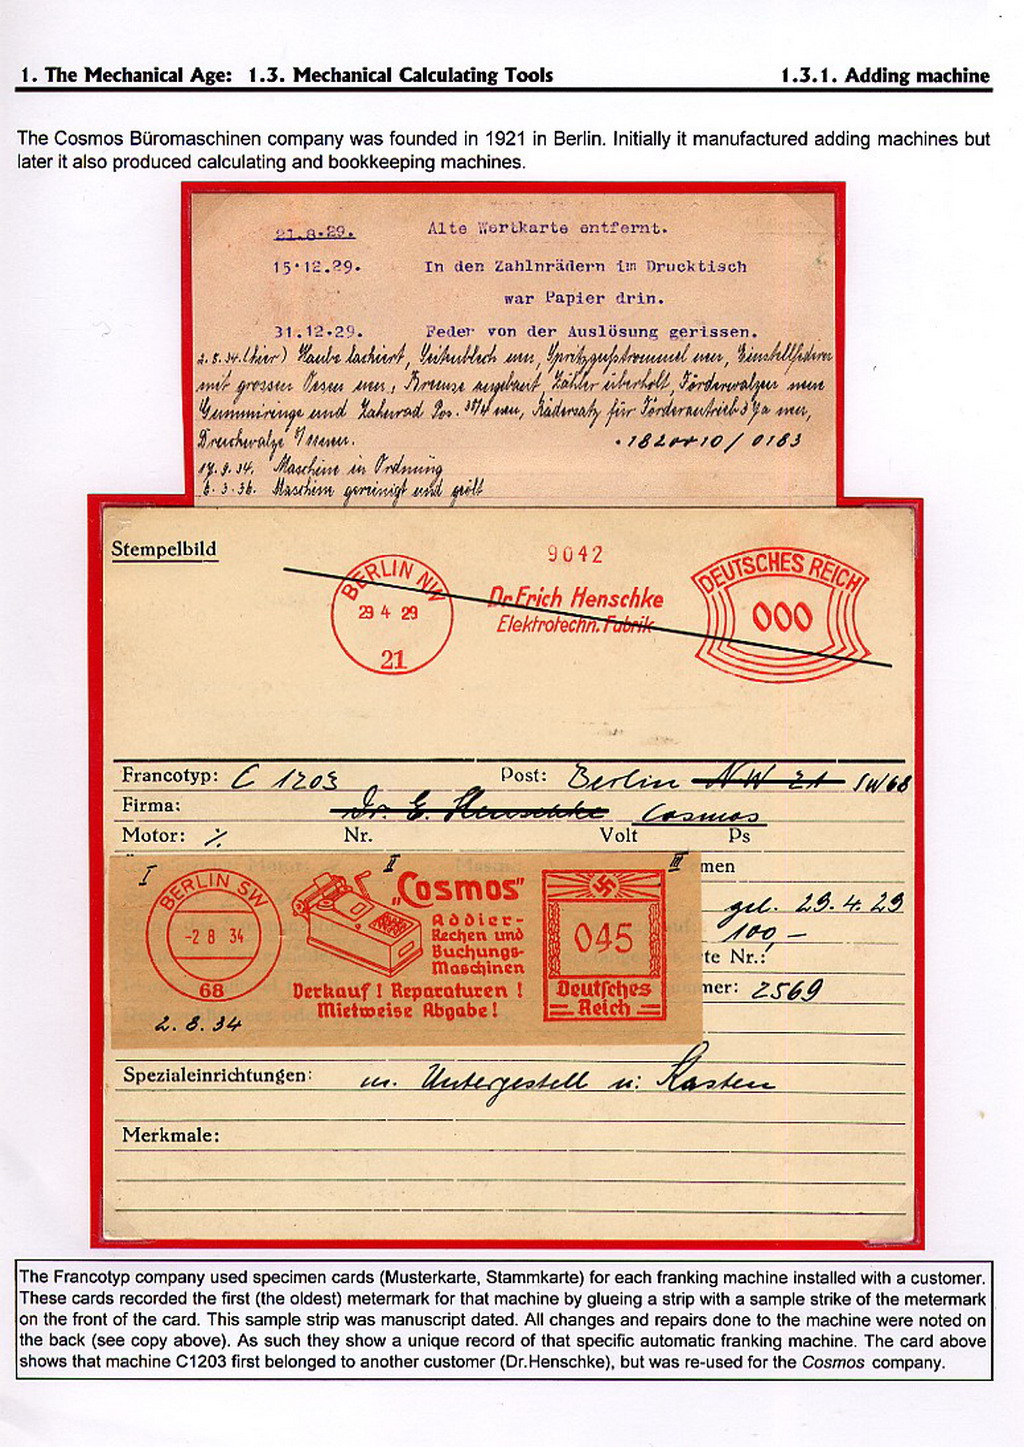 1. The Mechanical Age: 1.3. Mechanical Calculating Tools 1.3.1. Adding machine
The Cosmos Büromaschinen company was founded in 1921 in Berlin. Initially it manufactured adding machines but
later it also produced calculating and bookkeeping machines.
21.8.29. Alte Wertkarte entfernt.
15.12.29. In den Zahlnrädern im Drucktisch
war Papier drin.
31.12.29. Feder von der Auslösung gerissen.
2.8.34.(hier) Haube lackiert, Seitenblech neu, Spritzgußtrommel neu, Einstellfedern
mit grossen Oesen neu, Bremse angebaut Zähler überholt, Förderwalzen neue
Gummiringe und Zahnrad Pos. neu, Rädersatz für Förderantrieb 37a neu,
17.9.34. Maschine in Ordnung
6.3.36. Maschine gereinigt und geölt
Stempelbild
9042
BERLIN NW
29 4 29
21
Dr Erich Henschke
Elektrotechn. Fabrik
DEUTSCHES REICH
000
Francotyp: C 1203 Post: Berlin NW 21 SW 68
Firma: Dr. E. Henschke Cosmos
Motor: ./. Nr. Volt Ps
I II III men
BERLIN SW
-2 8 34
68
„Cosmos"
Addier-
Rechen und
Buchungs-
Maschinen
Verkauf! Reparaturen!
Mietweise Abgabe!
045
Deutsches
Reich
2.8.34
gel. 29.4.29
100,-
te Nr.:
mer: 2569
Spezialeinrichtungen: m. Untergestell u. Kasten
Merkmale:
The Francotyp company used specimen cards (Musterkarte, Stammkarte) for each franking machine installed with a customer.
These cards recorded the first (the oldest) metermark for that machine by glueing a strip with a sample strike of the metermark
on the front of the card. This sample strip was manuscript dated. All changes and repairs done to the machine were noted on
the back (see copy above). As such they show a unique record of that specific automatic franking machine. The card above
shows that machine C1203 first belonged to another customer (Dr.Henschke), but was re-used for the Cosmos company.